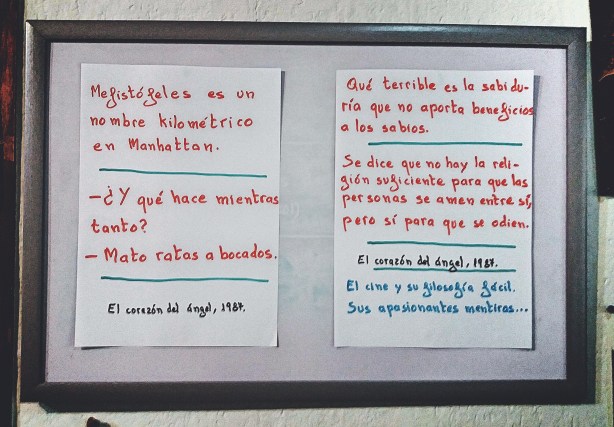 Mefistófeles es un
nombre kilométrico
en Manhattan.
-¿Y qué hace mientras
tanto?
- Mato ratas a bocados.
El corazón del ángel, 1987.
Qué terrible es la sabidu-
ría que no aporta beneficios
a los sabios.
Se dice que no hay la reli-
gión suficiente para que las
personas se amen entre sí,
pero sí para que se odien.
El corazón del ángel, 1987.
El cine y su filosofía fácil.
Sus apasionantes mentiras...